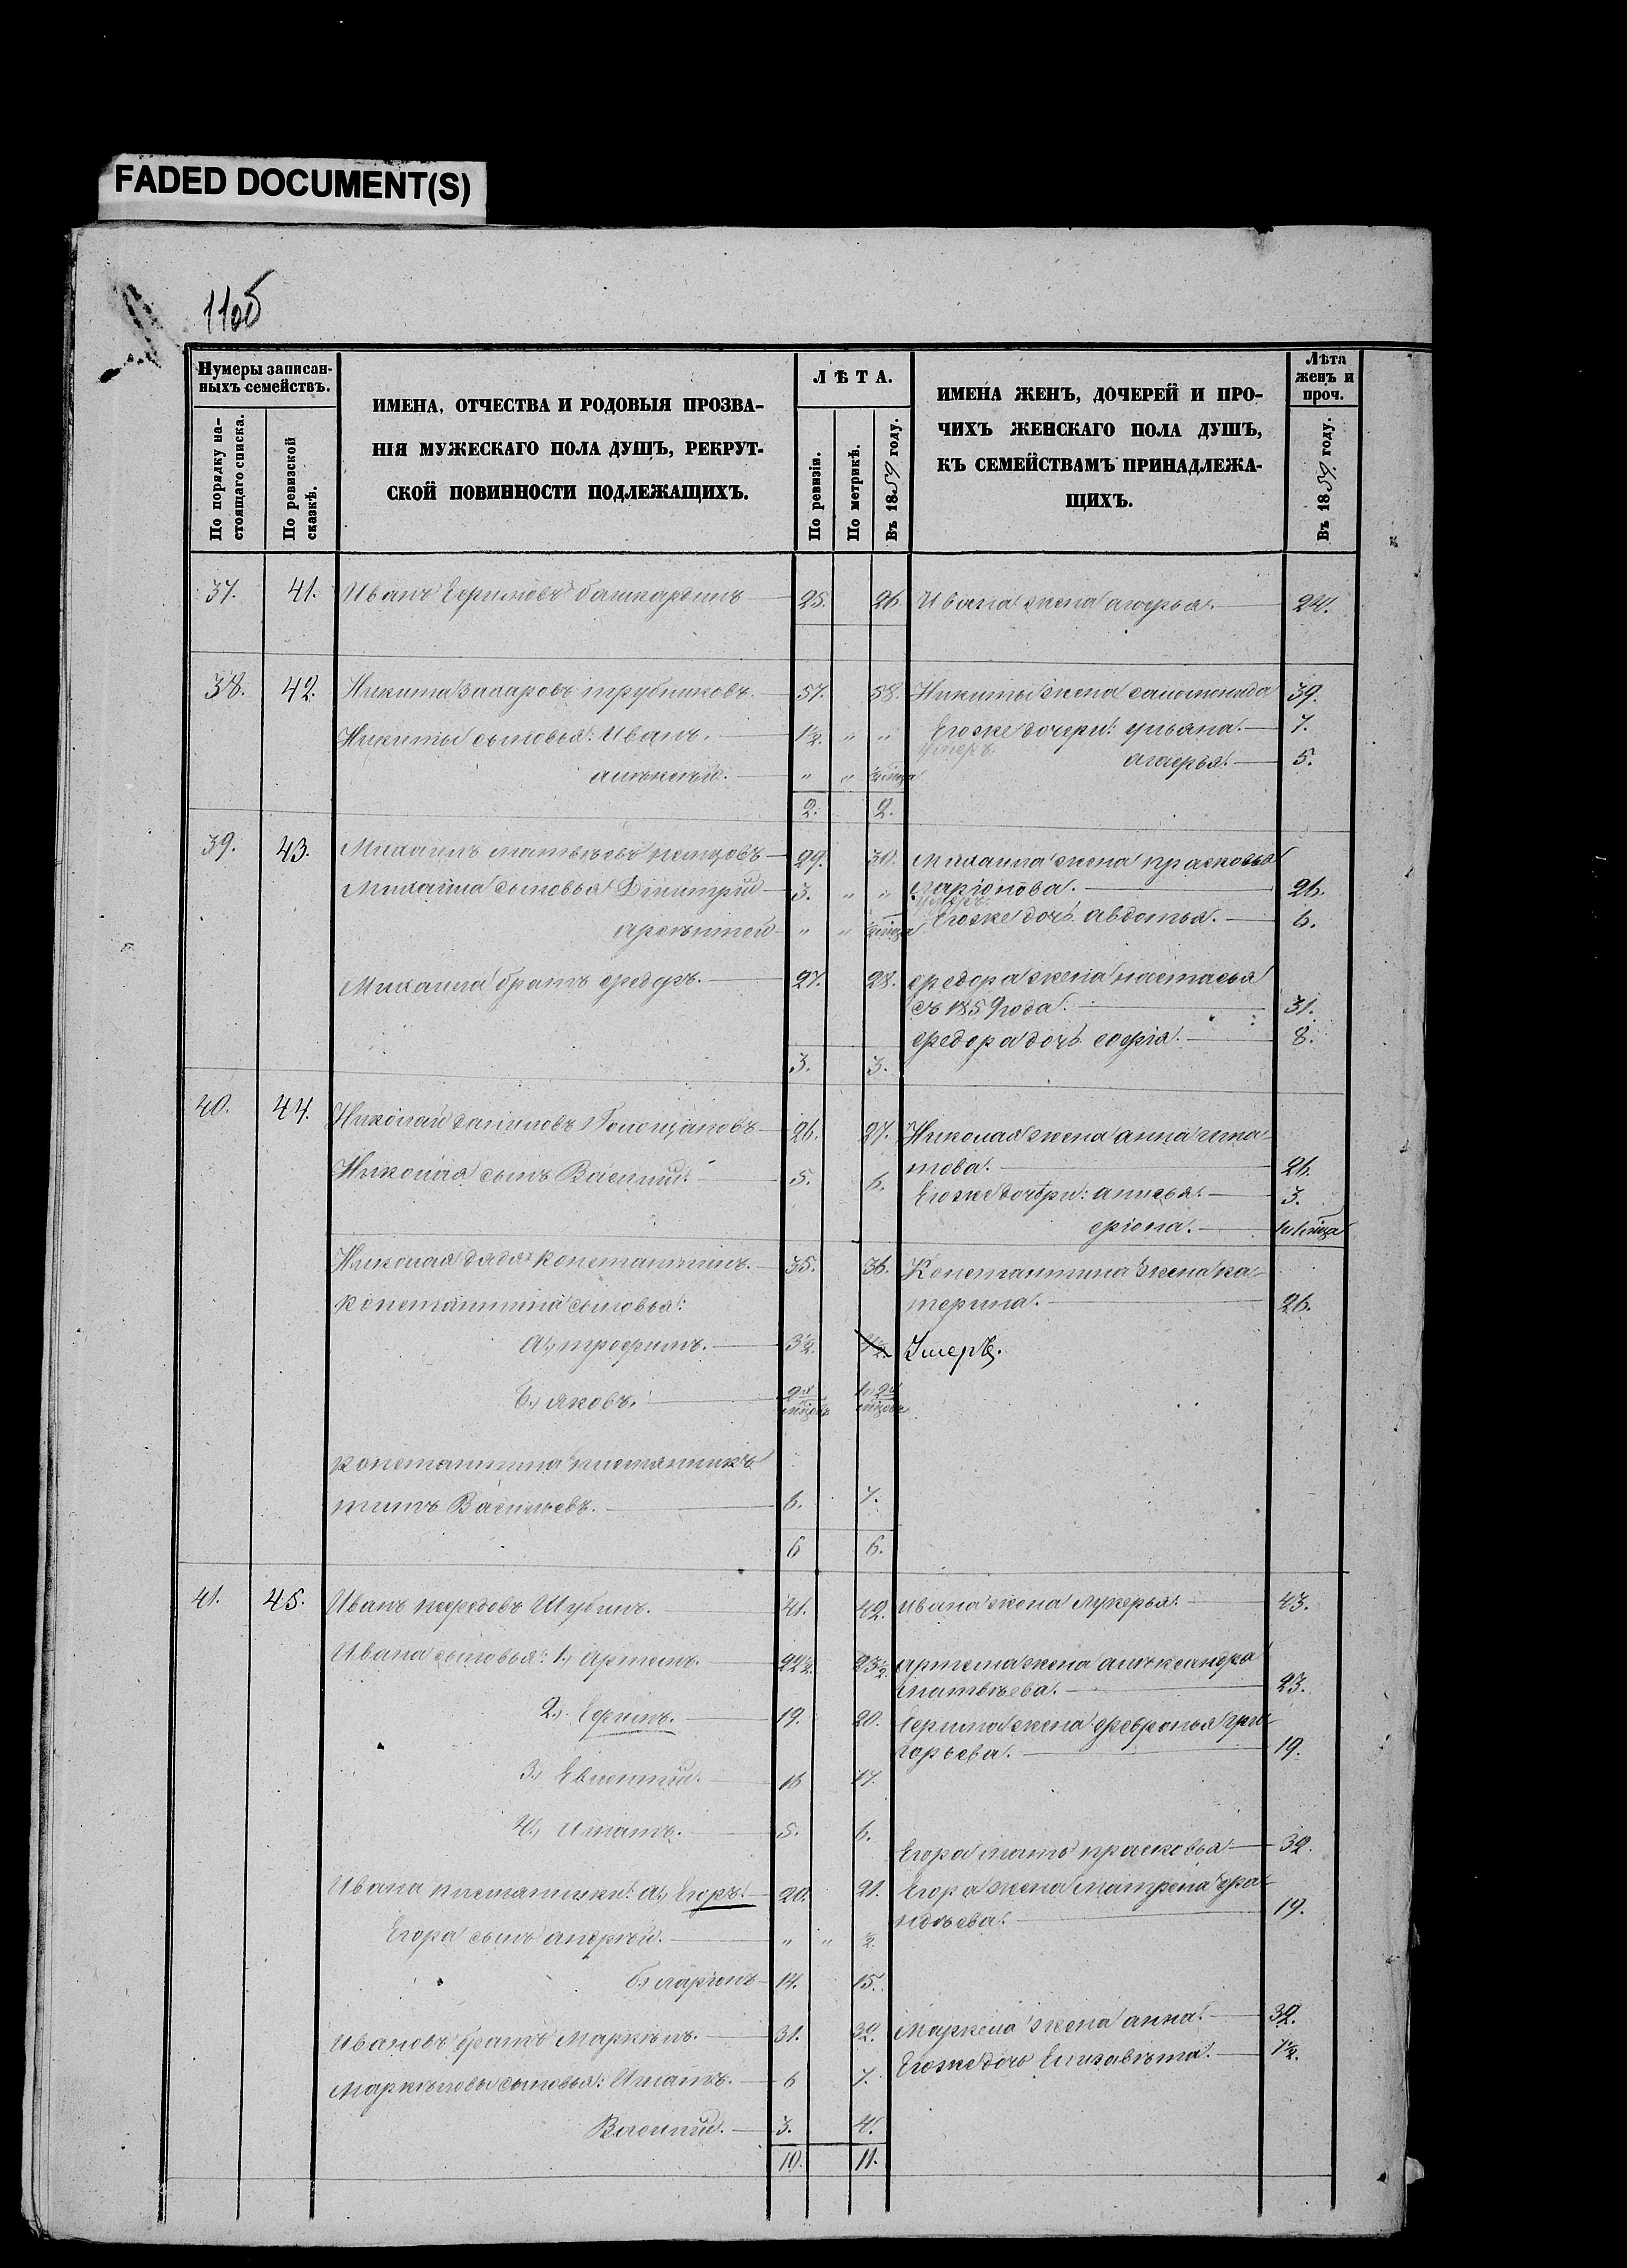 FADED DOCUMENT(S)
110б
Нумеры записан-
ныхъ семействъ.
По порядку на-
стоящаго списка.
По ревизской
сказкѣ.
ИМЕНА, ОТЧЕСТВА И РОДОВЫЯ ПРОЗВА-
НІЯ МУЖЕСКАГО ПОЛА ДУШЪ, РЕКРУТ-
СКОЙ ПОВИННОСТИ ПОДЛЕЖАЩИХЪ.
ЛѢТА.
По ревизіи.
По метрикѣ.
Въ 1859 году.
ИМЕНА ЖЕНЪ, ДОЧЕРЕЙ И ПРО-
ЧИХЪ ЖЕНСКАГО ПОЛА ДУШЪ,
КЪ СЕМЕЙСТВАМЪ ПРИНАДЛЕЖА-
ЩИХЪ.
Лѣта
женъ и
проч.
Въ 1859 году.
37. 41. Иванъ Ефимовъ башкардинъ 25. 26. Ивана жена агафья. 24.
38. 42. Никита захаровъ трубниковъ. 57. 58. Никиты жена саломонида 39.
Никиты сыновья: Иванъ. 1½. " " Егоже дочери: ульяна. 7.
умеръ
алѣксѣй. " " агафья. 5.
2. 2.
39. 43. Михаилъ матвѣевъ 29. 30. Михаила жена прасковья
Михайла сыновья Дмитрій 3. " " ларіонова. 26.
умеръ
арсѣнтей " " Егоже дочь авдотья. 6.
Михаила братъ федоръ. 27. 28. федора жена настасья
съ 1859 года. 31.
федора дочь софія. 8.
3. 3.
40. 44. Николай 26. 27. Николая жена анна игна-
това. 26.
Николая сынъ Василій. 5. 6. Егоже дочери: анисья. 3.
фіона.
Николая дядя Константинъ. 35. 36. Константина жена ка-
Константина сыновья: терина. 26.
а., трофимъ. 3½. 4½. Умеръ.
б., яковъ.
Константина племянникъ
титъ Васильевъ. 6. 7.
6 6.
41. 45. Иванъ нефедовъ Шубинъ. 41. 42. ивана жена лукерья. 43.
Ивана сыновья: 1., Артемъ. 22½. 23½. артема жена алѣксандра
матвѣева. 23.
2., Ефимъ. 19. 20. Ефима жена февронья гри-
горьева. 19.
3., Евлентий. 16 17.
4., Игнатъ. 5. 6.
Егора мать прасковья 32.
Ивана племянники: а., Егоръ. 20. 21. Егора жена Матрена фа-
ндѣева. 19.
Егора сынъ андрѣй. " " ½.
б., ларіонъ 14. 15.
Ивановъ братъ Маркѣлъ. 31. 32. Маркела жена анна. 32.
Маркѣловы сыновья: Игнатъ. 6 7. Егоже дочь Елизавѣта. 1½.
Василий. 3. 4.
10. 11.